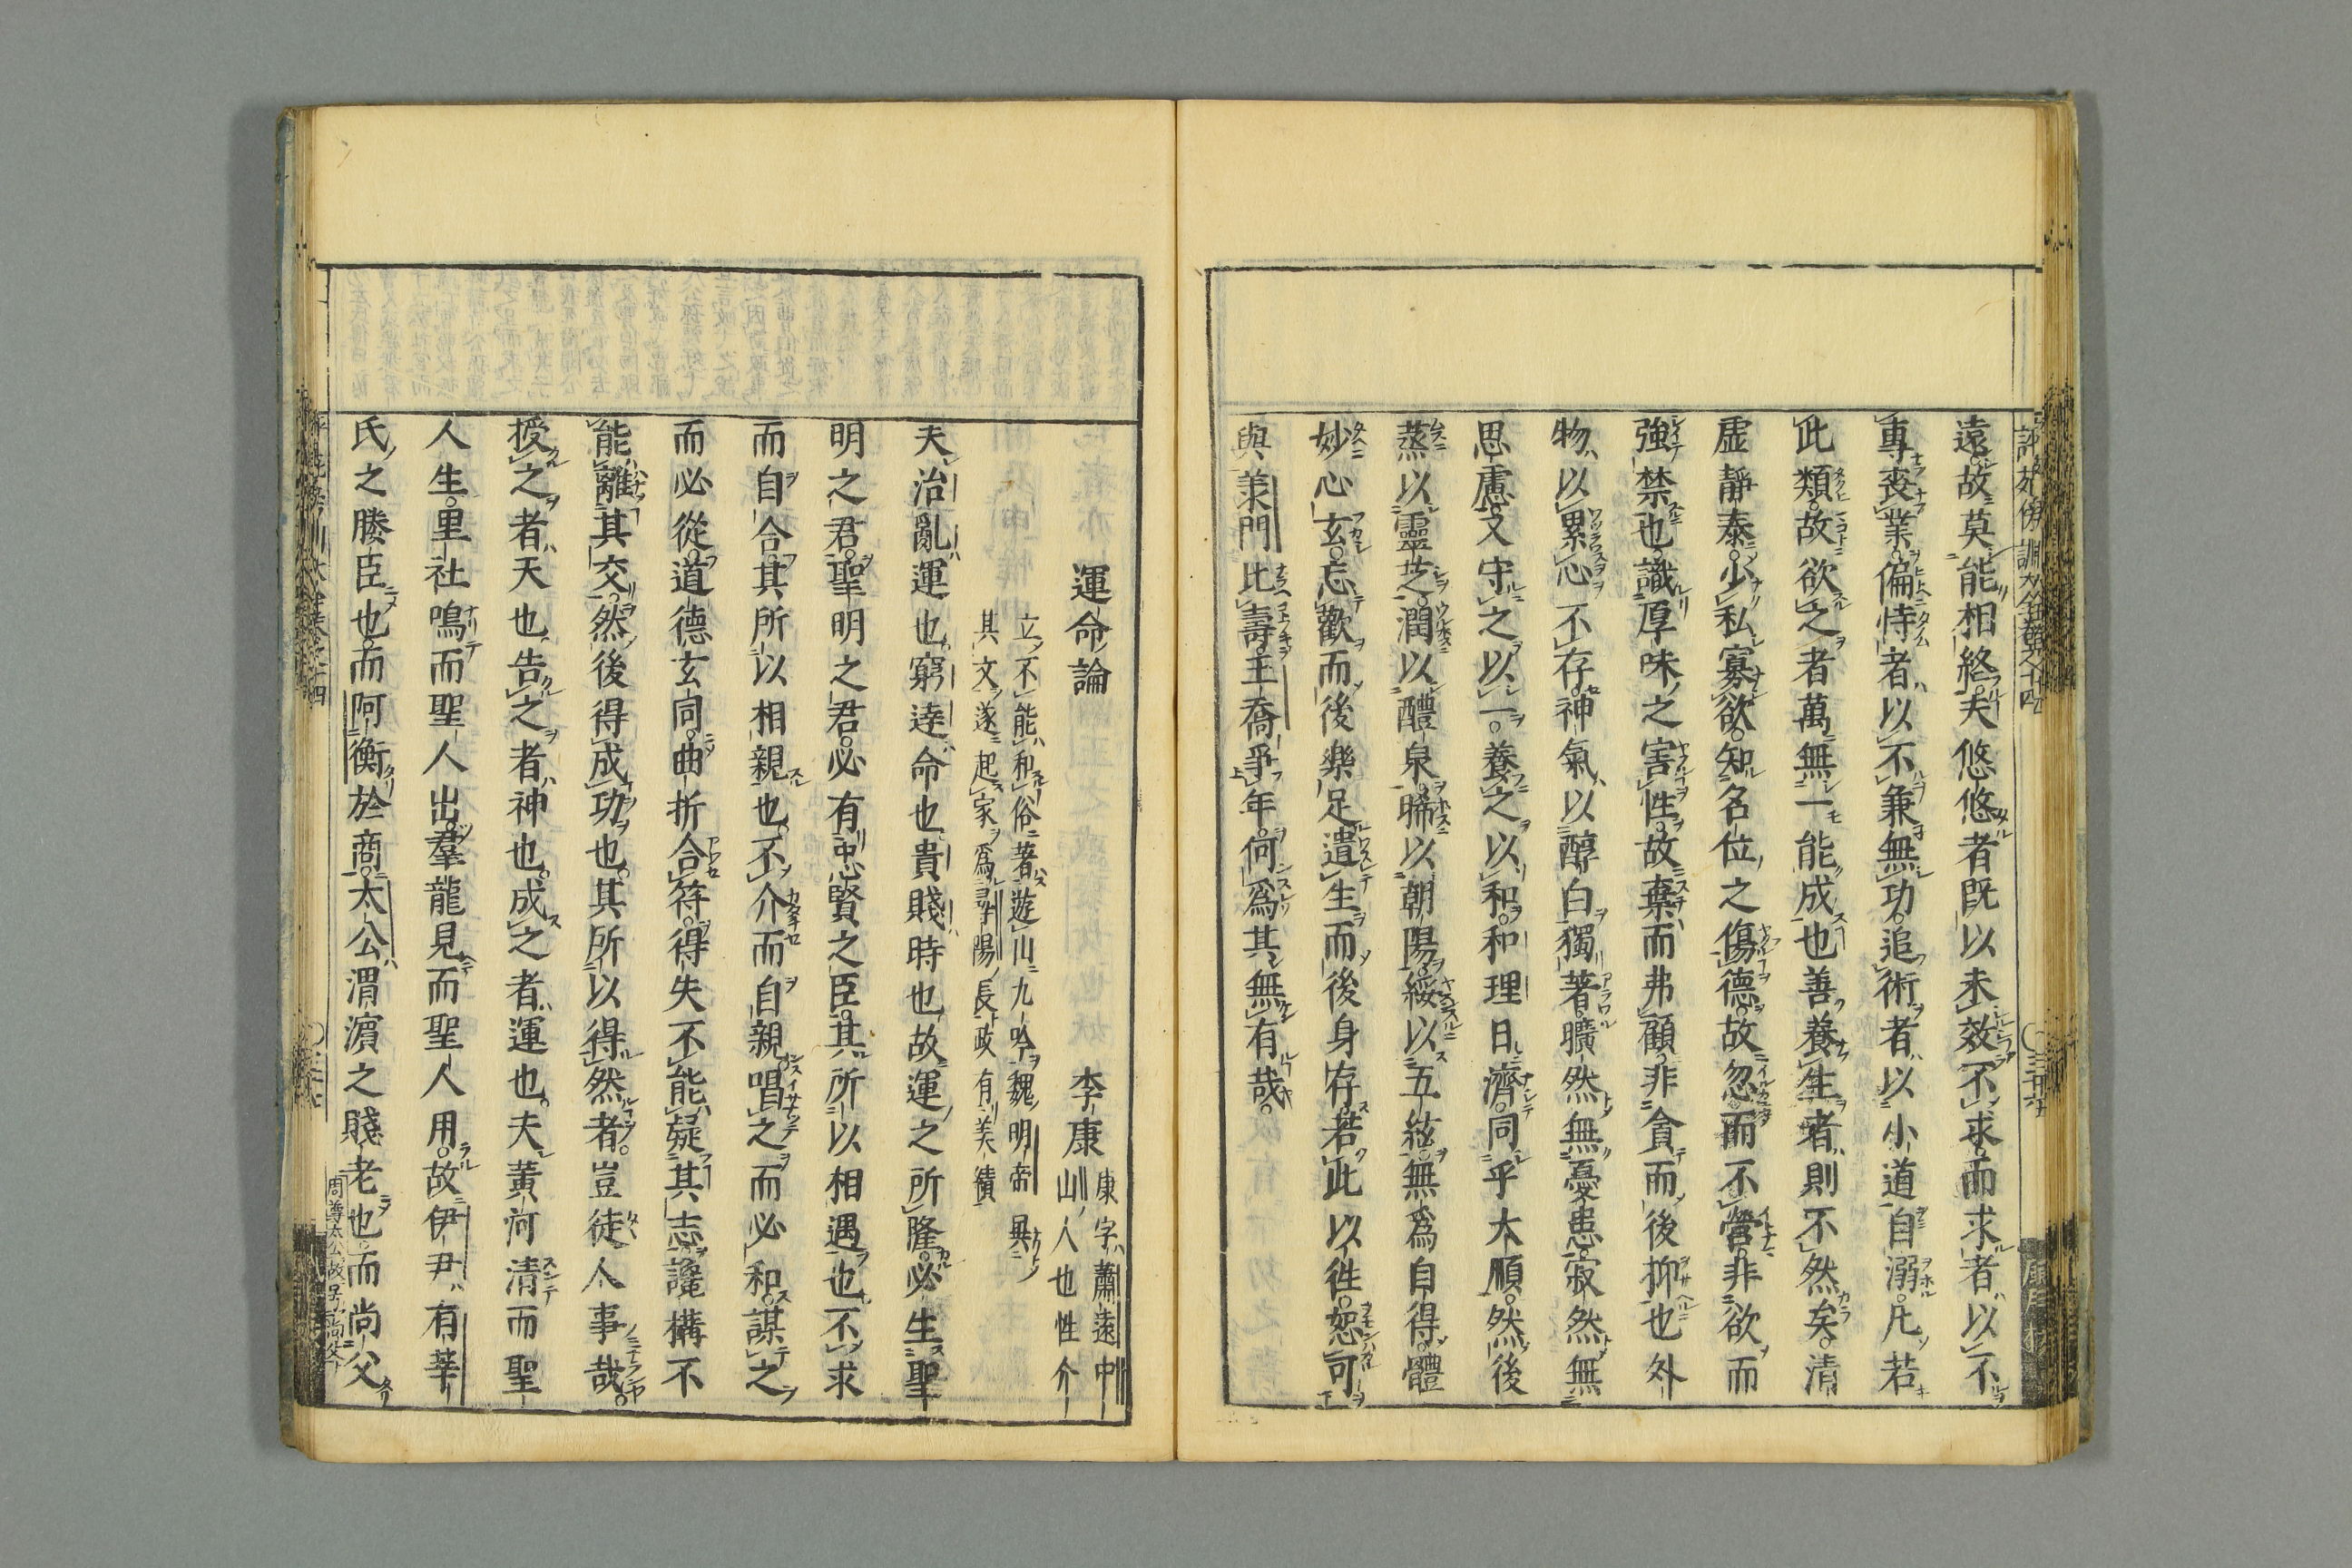 遠。故莫能相終。夫悠悠者既以未效不求。而求者以不
專喪業。偏恃者以不兼無功。追術者以小道自溺。凡若
此類。故欲之者萬無一能成也善養生者則不然矣。清
虛靜泰。少私寡欲。知名位之傷德。故忽而不營。非欲而
強禁也。識厚味之害性。故棄而弗顧。非貪而後抑也外
物以累心不存。神氣以醇白獨著。曠然無憂患。寂然無
思慮。又守之以一。養之以和。和理日濟。同乎大順。然後
蒸以靈芝。潤以醴泉。晞以朝陽。綏以五絃。無爲自得。體
妙心玄。忘歡而後樂足。遺生而後身存。若此以往。恕可
與羡門比壽。王喬爭年。何爲其無有哉。
運命論
李康
康字蕭遠中
山人也性介
立不能和俗著遊山九吟魏明帝異
其文遂起家爲尋陽長政有美績
夫治亂運也。窮達命也。貴賤時也。故運之所隆。必生聖
明之君。聖明之君。必有忠賢之臣。其所以相遇也。不求
而自合。其所以相親也。不介而自親。唱之而必和。謀之
而必從。道德玄同。曲折合符。得失不能疑其志。讒構不
能離其交。然後得成功也。其所以得然者。豈徒人事哉。
授之者天也。告之者神也。成之者運也。夫黃河清而聖
人生。里社鳴而聖人出。羣龍見而聖人用。故伊尹有莘
氏之媵臣也。而阿衡於商。太公渭濵之賤老也。而尚父
周尊太公故号尚父